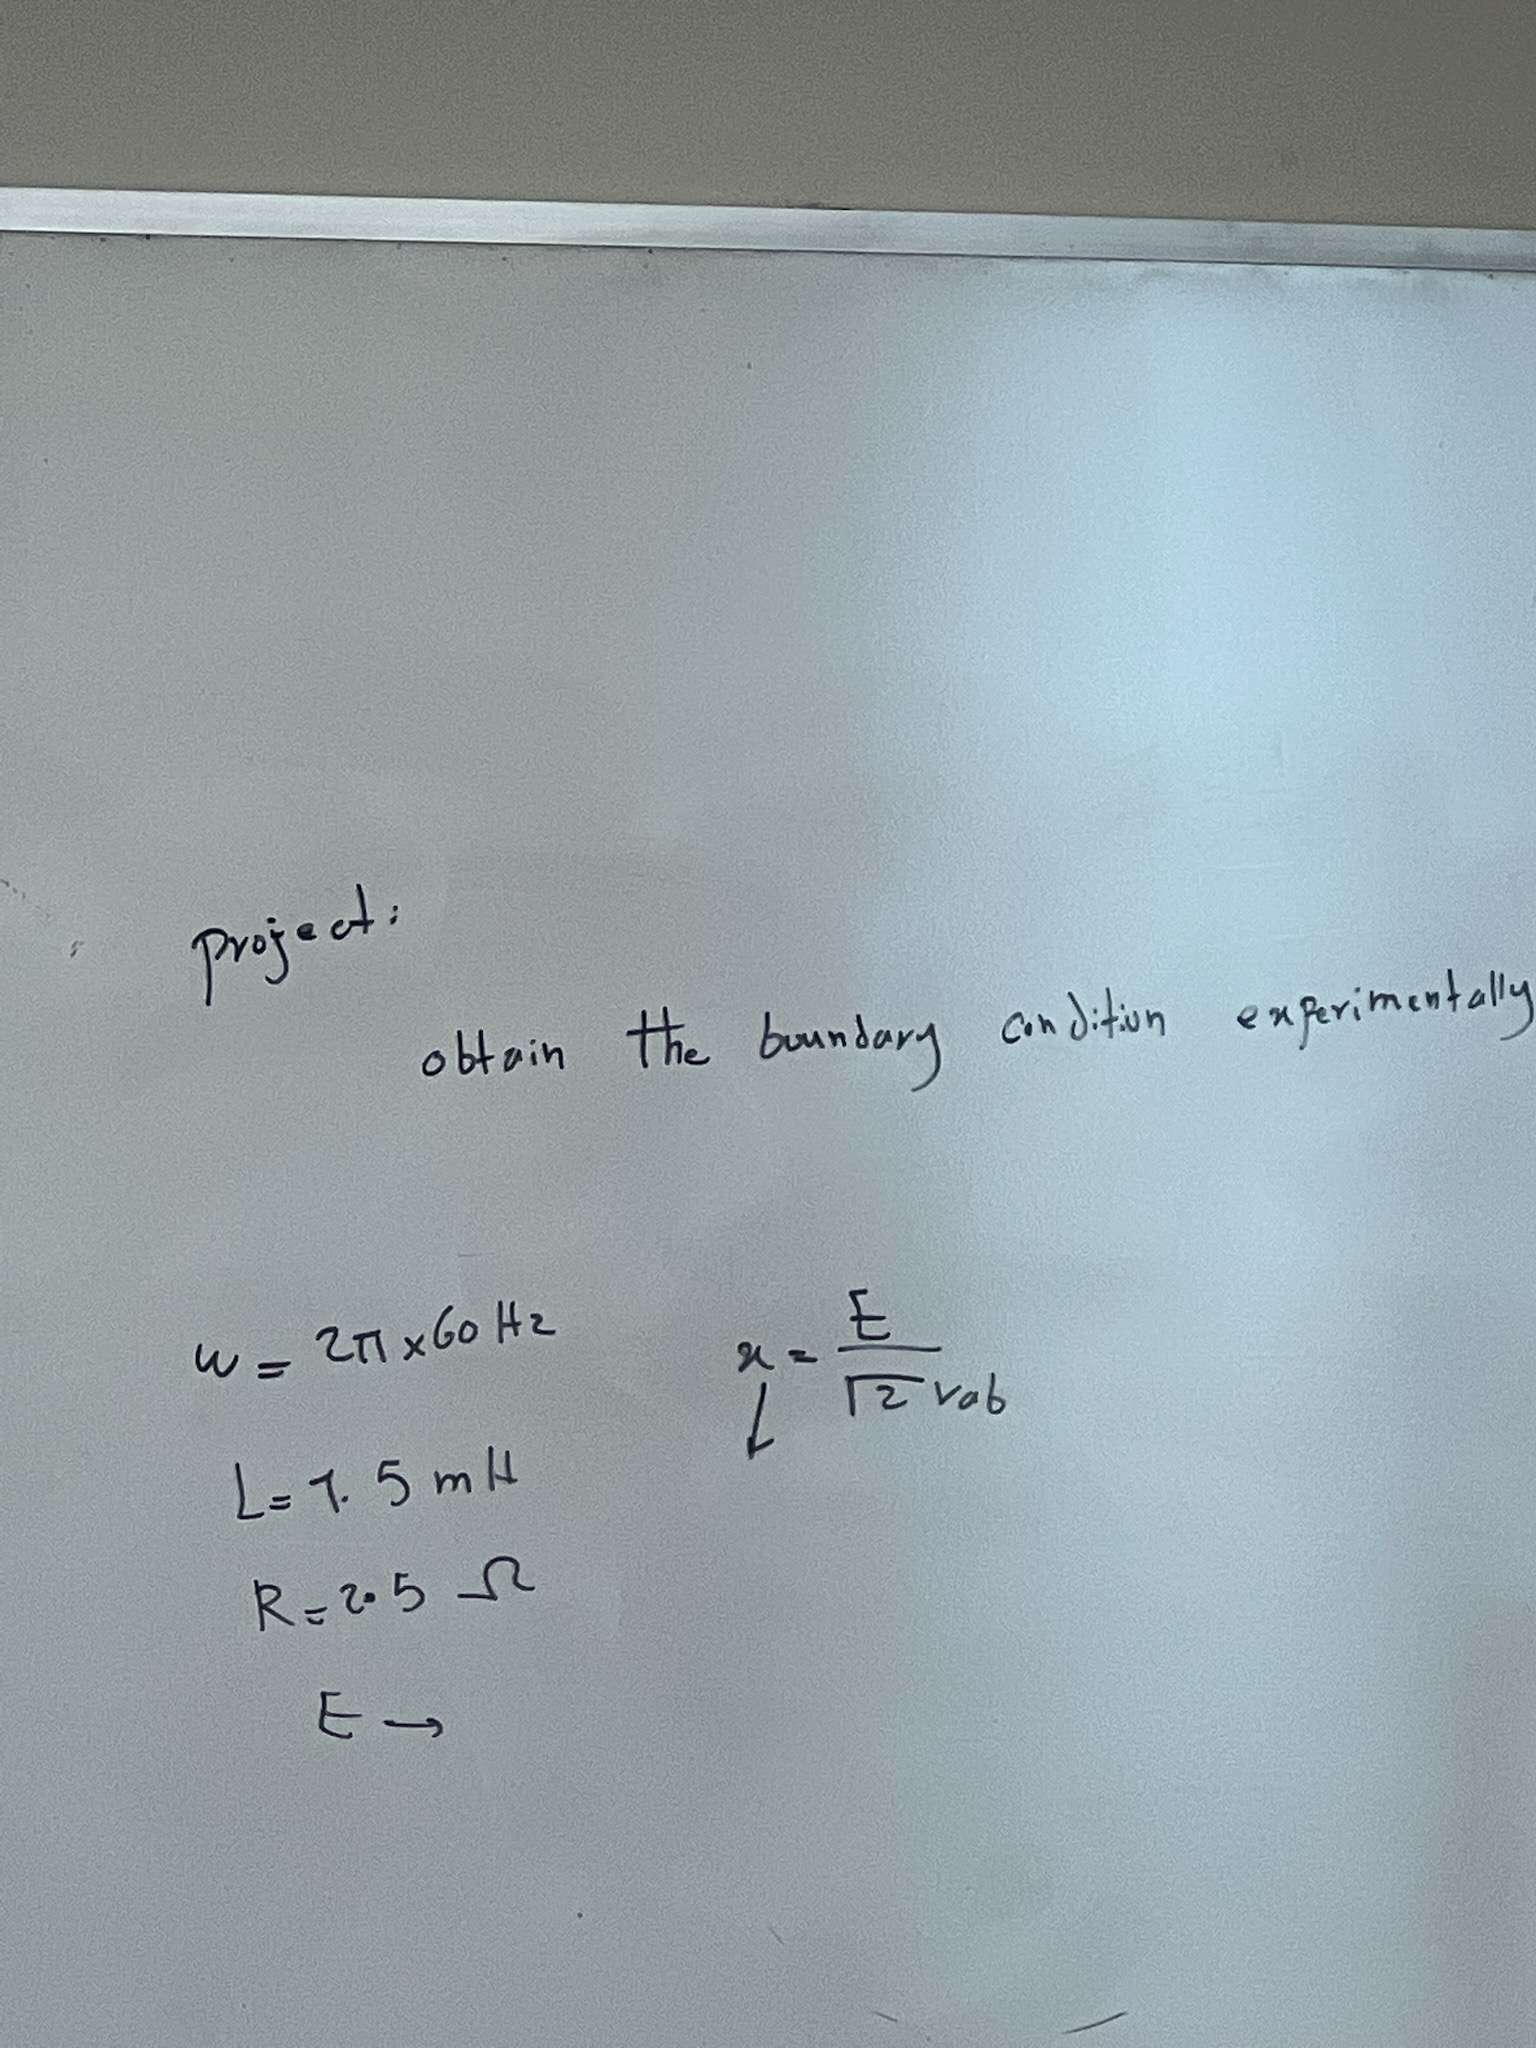 project:
obtain the boundary condition experimentally
w = 2π x 60 Hz
x = E / √2 Vab
↓
L = 1.5 mH
R = 2.5 Ω
E →